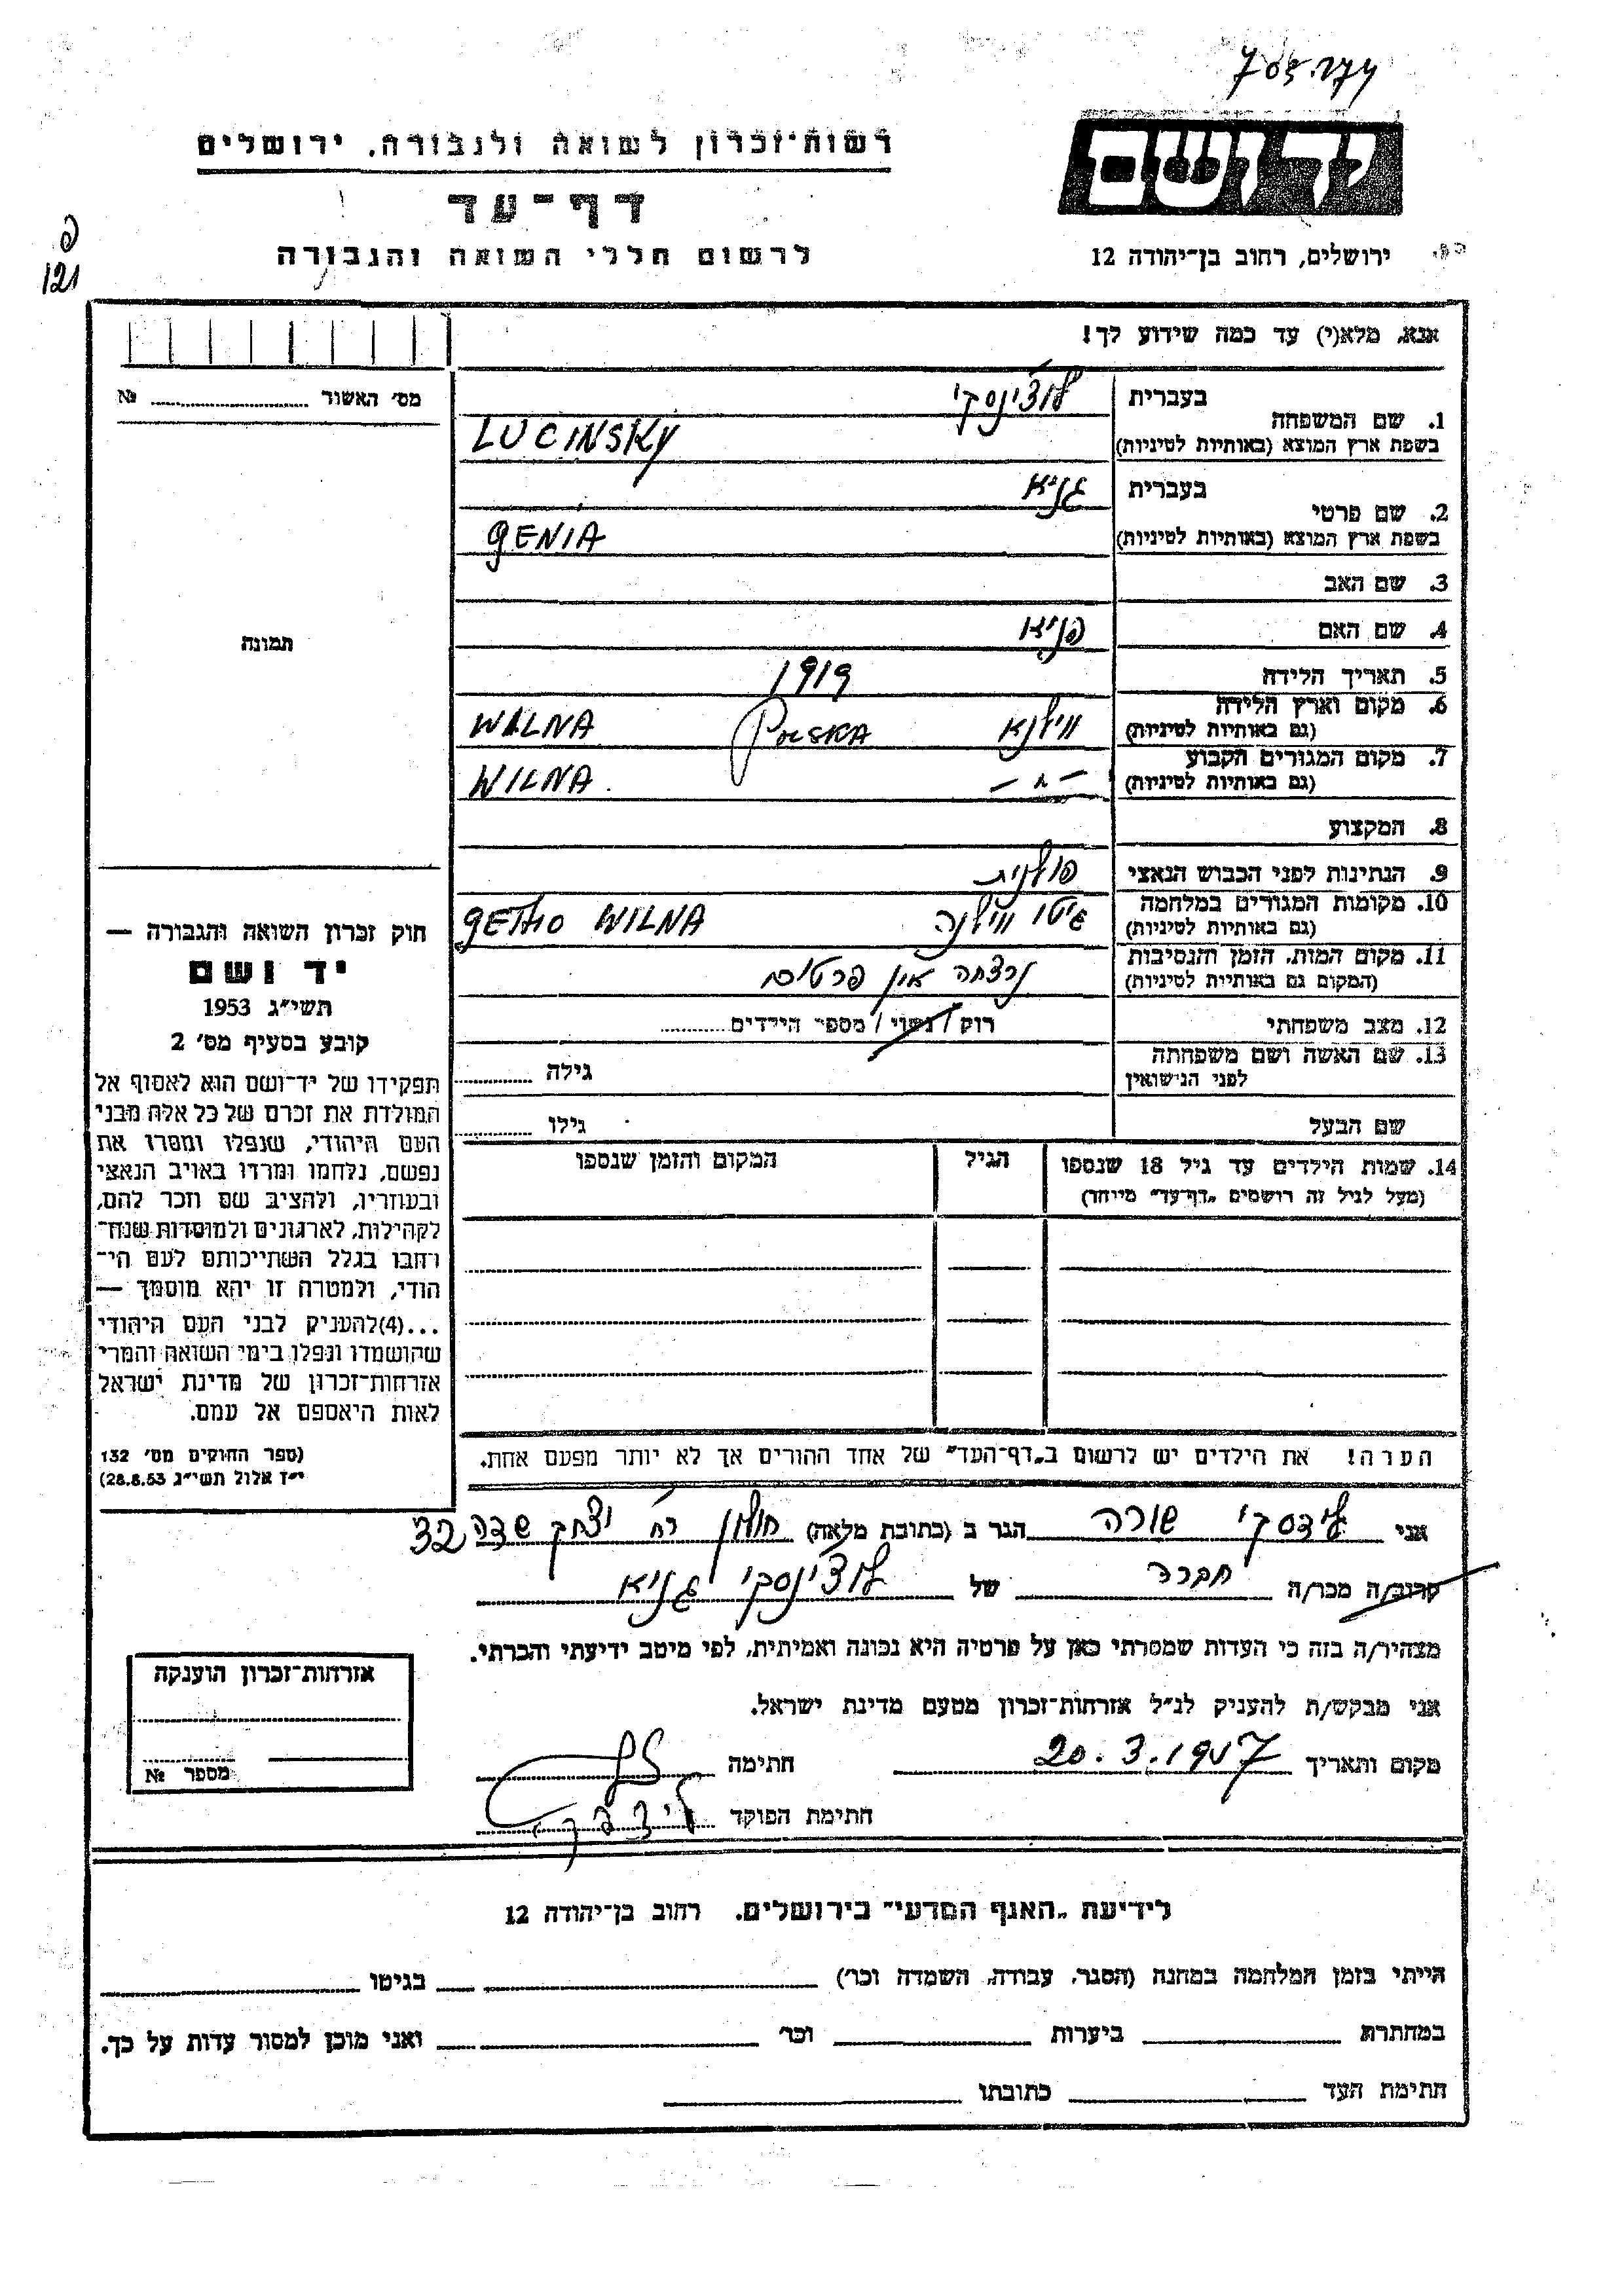 יד ושם
רשות־זכרון לשואה ולגבורה, ירושלים
דף־עד
לרשום חללי השואה והגבורה
ירושלים, רחוב בן־יהודה 12
פ
121
אנא, מלא(י) עד כמה שידוע לך!
מס׳ האשור № ........
תמונה
1. שם המשפחה
בעברית לוצ׳ינסקי
בשפת ארץ המוצא (באותיות לטיניות) LUCINSKY
2. שם פרטי
בעברית גניא
בשפת ארץ המוצא (באותיות לטיניות) GENIA
3. שם האב
4. שם האם פניא
5. תאריך הלידה 1919
6. מקום וארץ הלידה
(גם באותיות לטיניות) ווילנא POLSKA WILNA
7. מקום המגורים הקבוע
(גם באותיות לטיניות) – " – WILNA
8. המקצוע
9. הנתינות לפני הכבוש הנאצי פולנית
10. מקומות המגורים במלחמה
(גם באותיות לטיניות) גיטו ווילנה GETHO WILNA
11. מקום המות, הזמן והנסיבות
(המקום גם באותיות לטיניות) נרצחה אין פרטים
12. מצב משפחתי רוק / נשוי / מספר הילדים ........
13. שם האשה ושם משפחתה
לפני הנישואין גילה ........
שם הבעל גילו ........
14. שמות הילדים עד גיל 18 שנספו הגיל המקום והזמן שנספו
(מעל לגיל זה רושמים „דף־עד״ מייחד)
הערה! את הילדים יש לרשום ב„דף־העד״ של אחד ההורים אך לא יותר מפעם אחת.
חוק זכרון השואה והגבורה —
יד ושם
תשי״ג 1953
קובע בסעיף מס׳ 2
תפקידו של יד־ושם הוא לאסוף אל
המולדת את זכרם של כל אלה מבני
העם היהודי, שנפלו ומסרו את
נפשם, נלחמו ומרדו באויב הנאצי
ובעוזריו, ולהציב שם וזכר להם,
לקהילות, לארגונים ולמוסדות שנח־
רחבו בגלל השתייכותם לעם הי־
הודי, ולמטרה זו יהא מוסמך —
...(4)להעניק לבני העם היהודי
שהושמדו ונפלו בימי השואה והמרי
אזרחות־זכרון של מדינת ישראל
לאות היאספם אל עמם.
(ספר החוקים מס׳ 132
י״ז אלול תשי״ג 28.8.53)
אני לידסקי שורה הגר ב (כתובת מלאה) חולון רח׳ יצחק שדה 32
קרוב/ה מכר/ה חברה של לוצ׳ינסקי גניא
מצהיר/ה בזה כי העדות שמסרתי כאן על פרטיה היא נכונה ואמיתית, לפי מיטב ידיעתי והכרתי.
אני מבקש/ת להעניק לנ״ל אזרחות־זכרון מטעם מדינת ישראל.
מקום ותאריך 20.3.1957 חתימה
חתימת הפוקד
אזרחות־זכרון הוענקה
מספר №
לידיעת „האגף המדעי״ בירושלים. רחוב בן־יהודה 12
הייתי בזמן המלחמה במחנה (הסגר, עבודה, השמדה וכר׳) בגיטו
במחתרת ביערות וכר׳ ואני מוכן למסור עדות על כך.
חתימת העד כתובתו